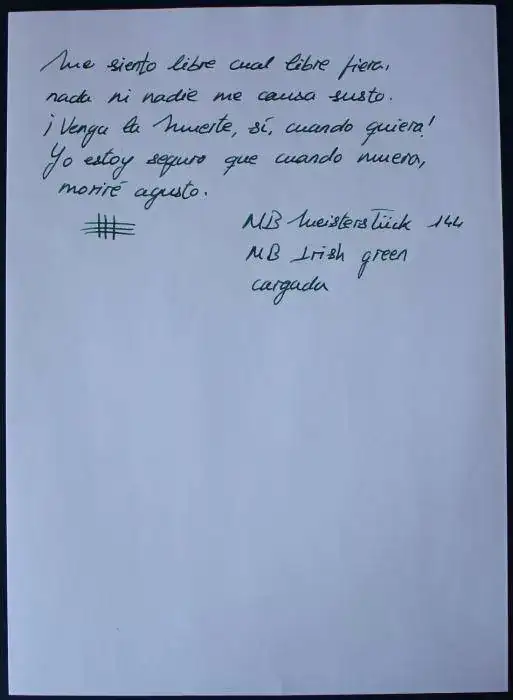 Me siento libre cual libre fiera,
nada ni nadie me causa susto.
¡Venga la Muerte, sí, cuando quiera!
Yo estoy seguro que cuando muera,
moriré agusto.
MB Meisterstück 144
MB Irish green
cargada